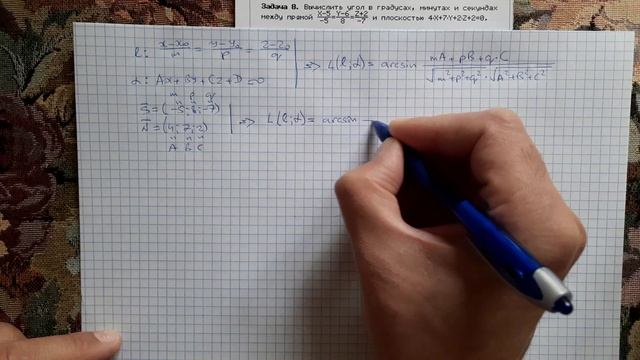 Задача 8. Вычислить угол в градусах, минутах и секундах
между прямой X-5/-5=Y-6/8=Z+2/-7 и плоскостью 4·X+7·Y+2·Z+2=0.
l: x-x₀/m = y-y₀/p = z-z₀/q => ∠(l;α) = arcsin mA+pB+q·C/√m²+p²+q²·√A²+B²+C²
α: Ax+By+Cz+D=0
m p q
s⃗=(-5;8;-7)
N⃗=(4;7;2) => ∠(l;α)= arcsin
A B C